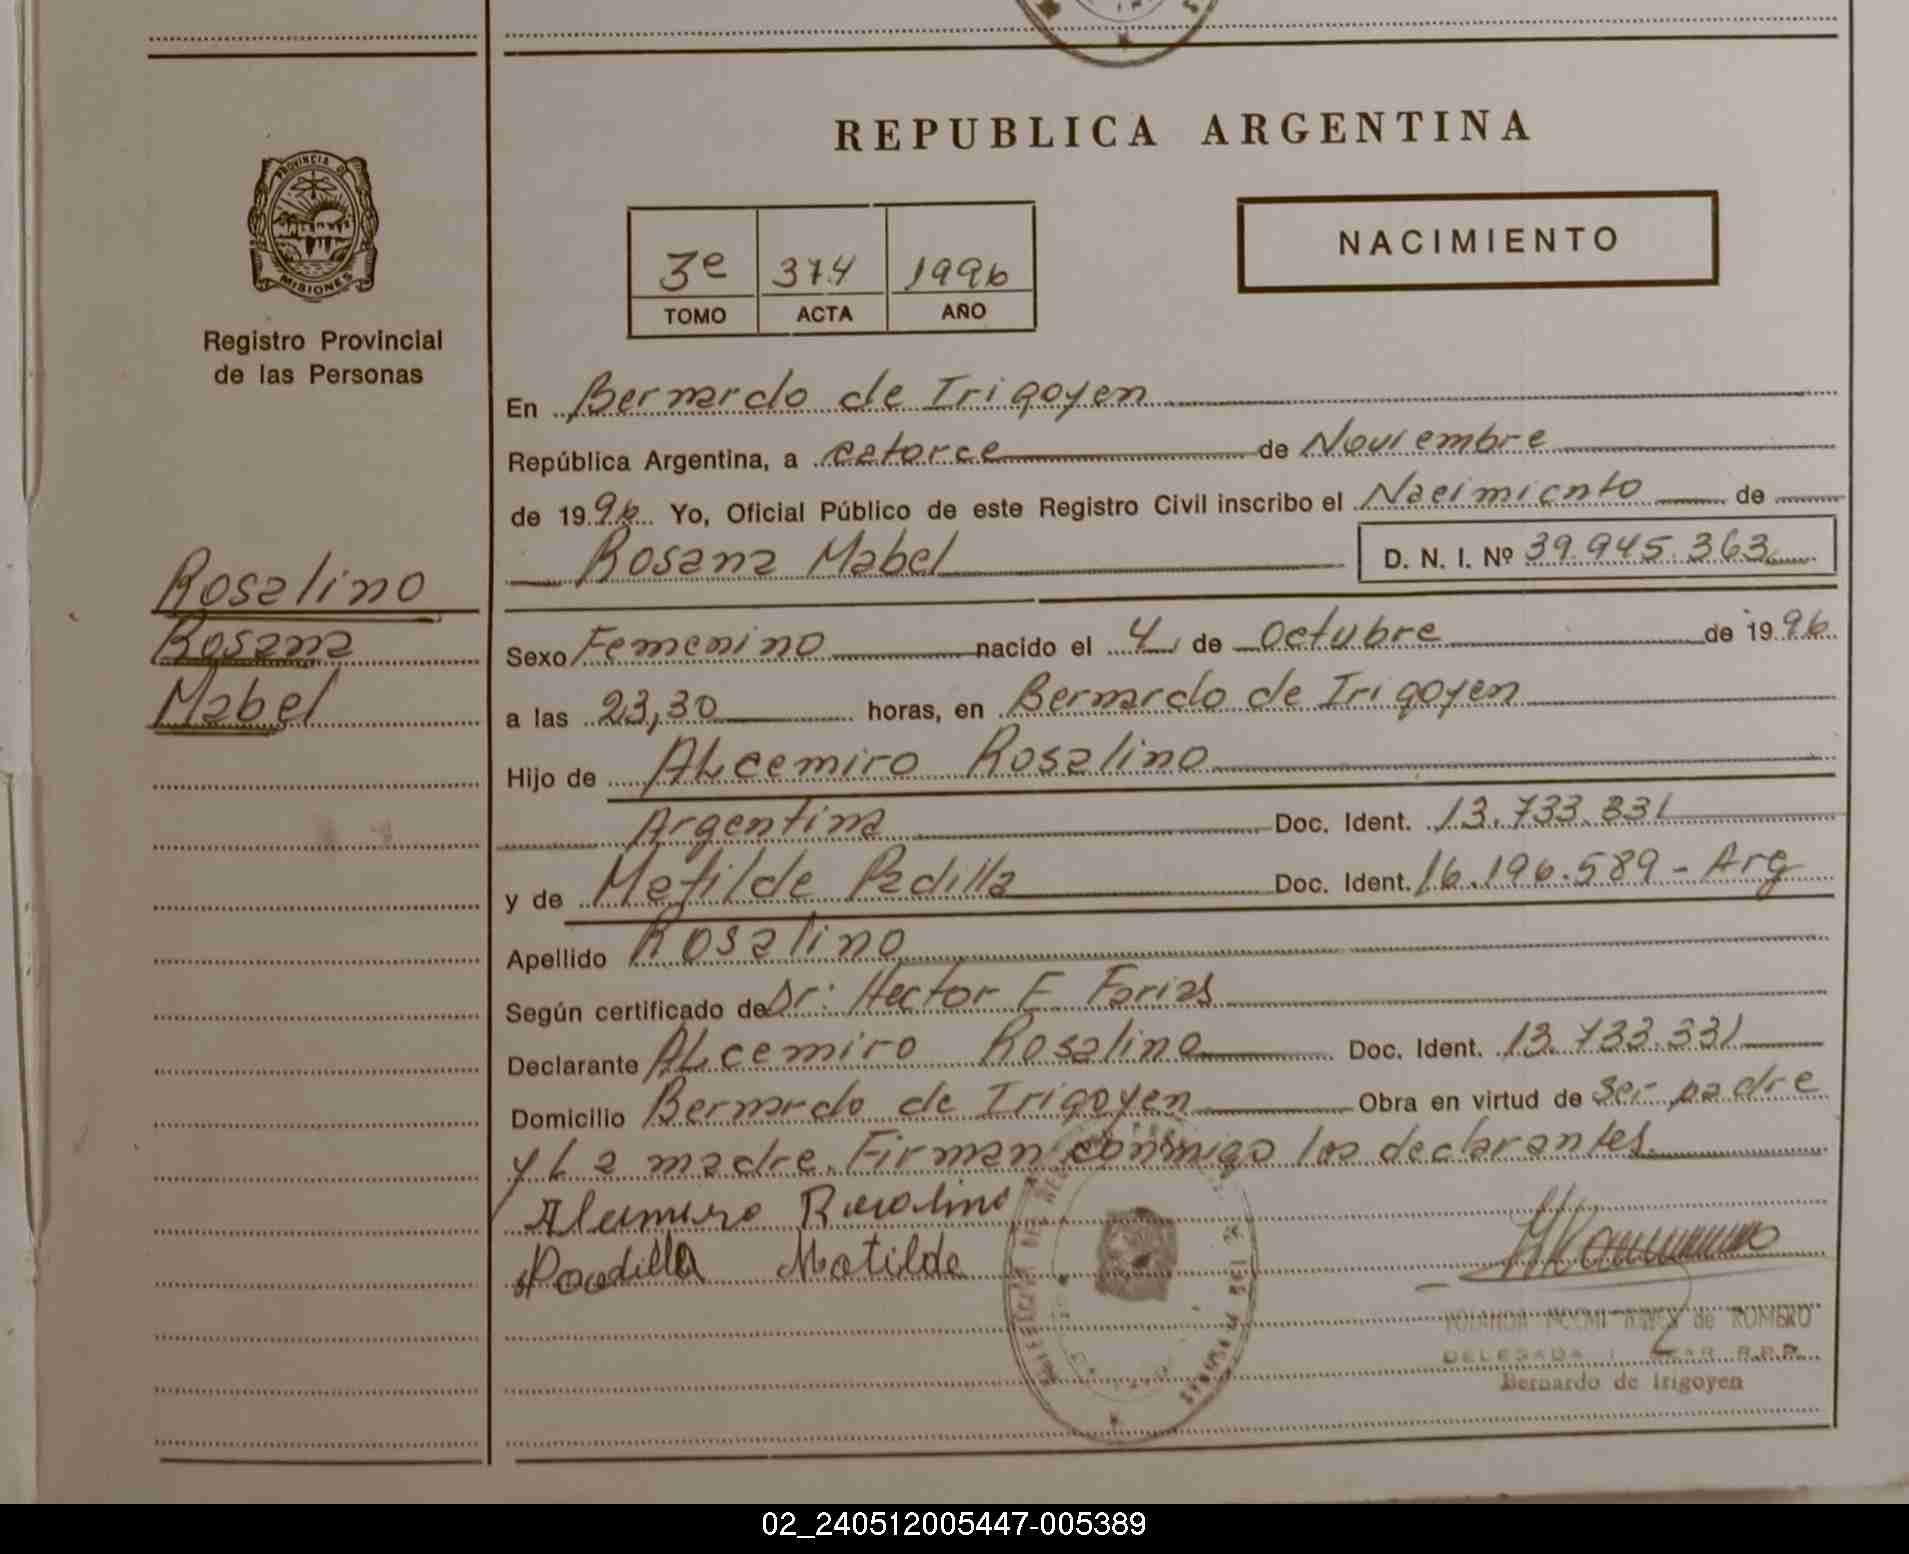 REPUBLICA ARGENTINA
PROVINCIA DE
MISIONES
Registro Provincial
de las Personas
3e 374 1996
TOMO ACTA AÑO
NACIMIENTO
En Bernardo de Irigoyen
República Argentina, a catorce de Noviembre
de 1996 Yo, Oficial Público de este Registro Civil inscribo el Nacimiento de
Rosana Mabel D. N. I. Nº 39.945.363
Rosalino
Rosana
Mabel
Sexo Femenino nacido el 4 de Octubre de 1996
a las 23,30 horas, en Bernardo de Irigoyen
Hijo de Alcemiro Rosalino
Argentina Doc. Ident. 13.733.331
y de Matilde Padilla Doc. Ident. 16.196.589 - Arg
Apellido Rosalino
Según certificado de Dr: Hector E Farias
Declarante Alcemiro Rosalino Doc. Ident. 13.733.331
Domicilio Bernardo de Irigoyen Obra en virtud de ser padre
y La madre. Firman conmigo los declarantes.
Rosalino
Padilla Matilde
de ROMERO
DELEGADA R.P.P.
Bernardo de Irigoyen
02_240512005447-005389